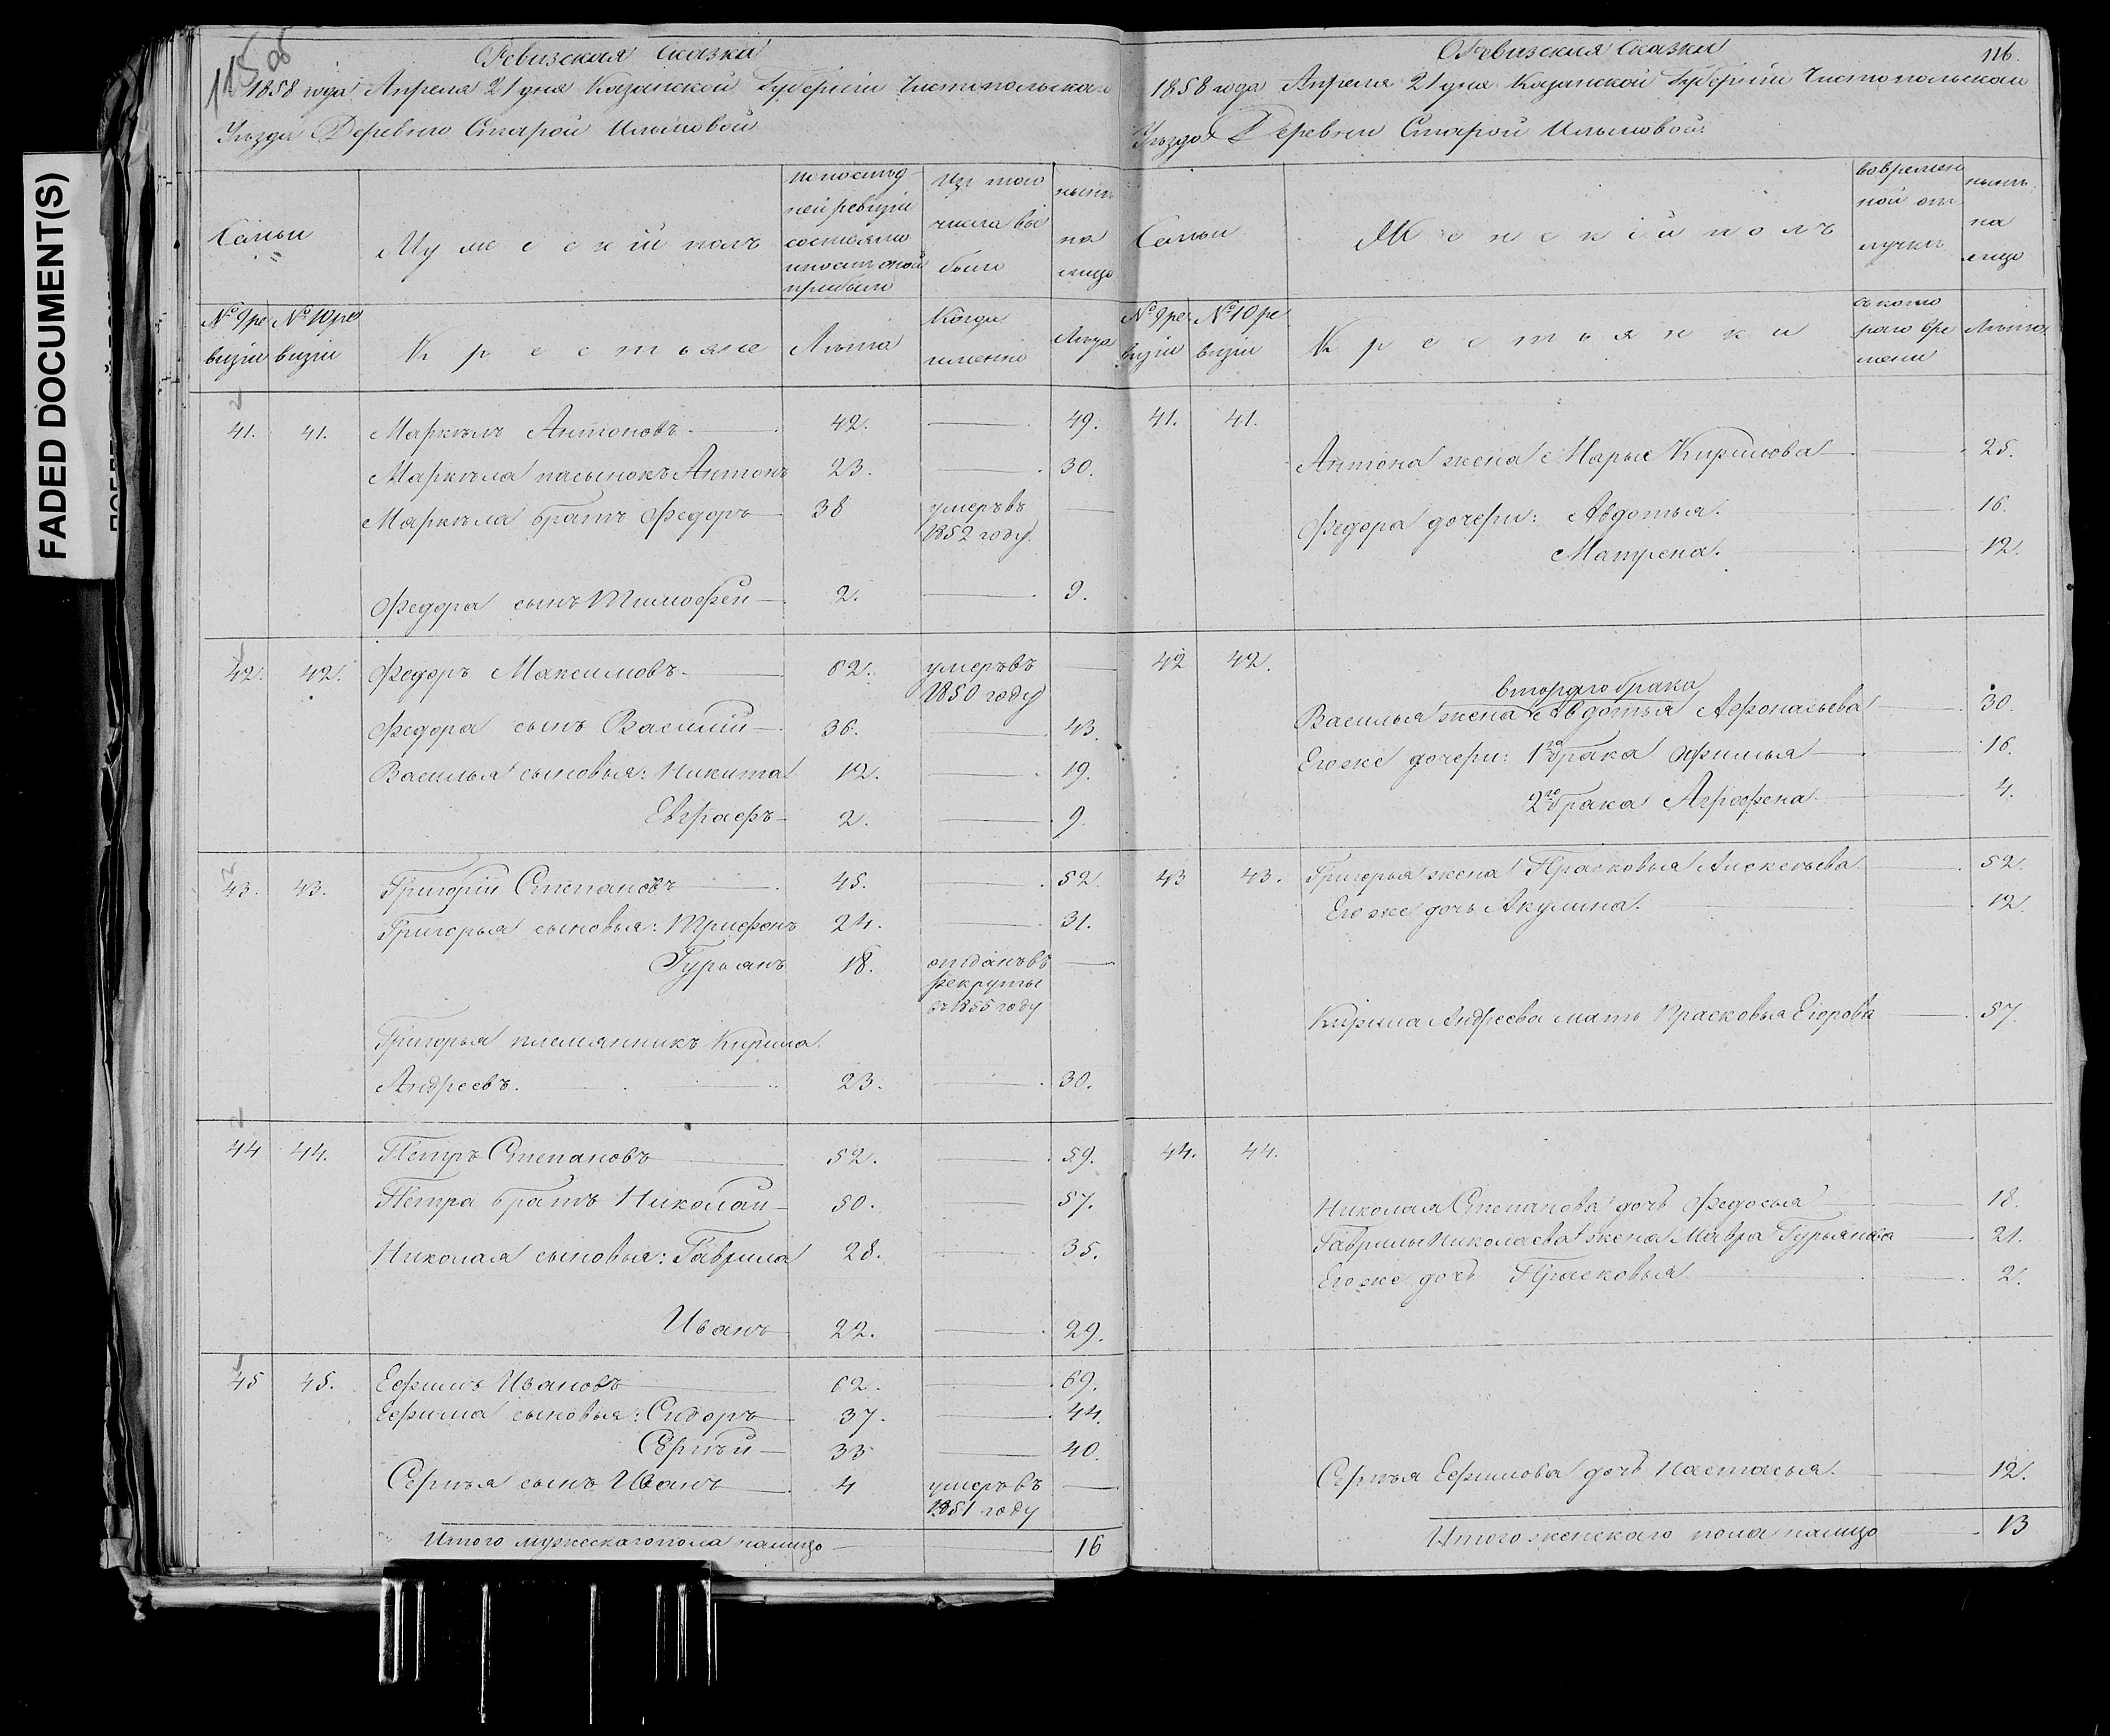 FADED DOCUMENT(S)
115 об
Ревизская сказка
1858 года Апреля 21 дня Казанской Губерніи Чистопольскаго
Уѣзда Деревни Старой Ильмовой
Семьи
Мужескій полъ
по послѣд
ней ревизіи
состояло
и послѣ оной
прибыло
Изъ того
числа вы
было
нынѣ
на
лицо
№ 9 ре
визіи
№ 10 ре
визіи
Крестьяне
Лѣта
Когда
именно
Лѣта
41. 41. Маркелъ Антоновъ 42. 49.
Маркела пасынокъ Антонъ 23. 30.
Маркела братъ Федоръ 38 умеръ въ
1852 году.
Федора сынъ Тимофей 2. 9.
42. 42. Федоръ Максимовъ 62. умеръ въ
1850 году
Федора сынъ Василій 36. 43.
Василья сыновья: Никита 12. 19.
Евграфъ 2. 9.
43. 43. Григорій Степановъ 45. 52.
Григорья сыновья: Трифонъ 24. 31.
Гурьянъ 18. отданъ въ
рекруты
въ 1855 году
Григорья племянникъ Кирила
Андреевъ. 23. 30.
44 44. Петръ Степановъ 52. 59.
Петра братъ Николай 50. 57.
Николая сыновья: Гаврила 28. 35.
Иванъ 22. 29.
45 45. Ефимъ Ивановъ 62. 69.
Ефима сыновья: Сидоръ 37. 44.
Сергѣй 33 40.
Сергѣя сынъ Иванъ 4 умеръ въ
1851 году
Итого мужескаго пола налицо 16
116.
Ревизская сказка
1858 года Апреля 21 дня Казанской Губерніи Чистопольскаго
Уѣзда Деревни Старой Ильмовой
Семьи
Женскій полъ
во времен
ной от
лучкѣ
нынѣ
на
лицо
№ 9 ре
визіи
№ 10 ре
визіи
Крестьянки
съ кото
раго вре
мени
Лѣта
41. 41.
Антона жена Марья Кирилова 25.
Федора дочери: Авдотья. 16.
Матрена. 12.
42 42.
втораго брака
Василья жена Авдотья Афонасьева 30.
Его же дочери: 1го брака Афимья 16.
2го брака Аграфена 4.
43 43. Григорья жена Прасковья Алексѣева 52
Его же дочь Акулина. 12.
Кирила Андреева мать Прасковья Егорова 57.
44. 44.
Николая Степанова дочь Федосья 18.
Гаврилы Николаева жена Мавра Гурьянова 21.
Его же дочь Прасковья 2.
Сергѣя Ефимова дочь Настасья. 12.
Итого женскаго пола налицо 13